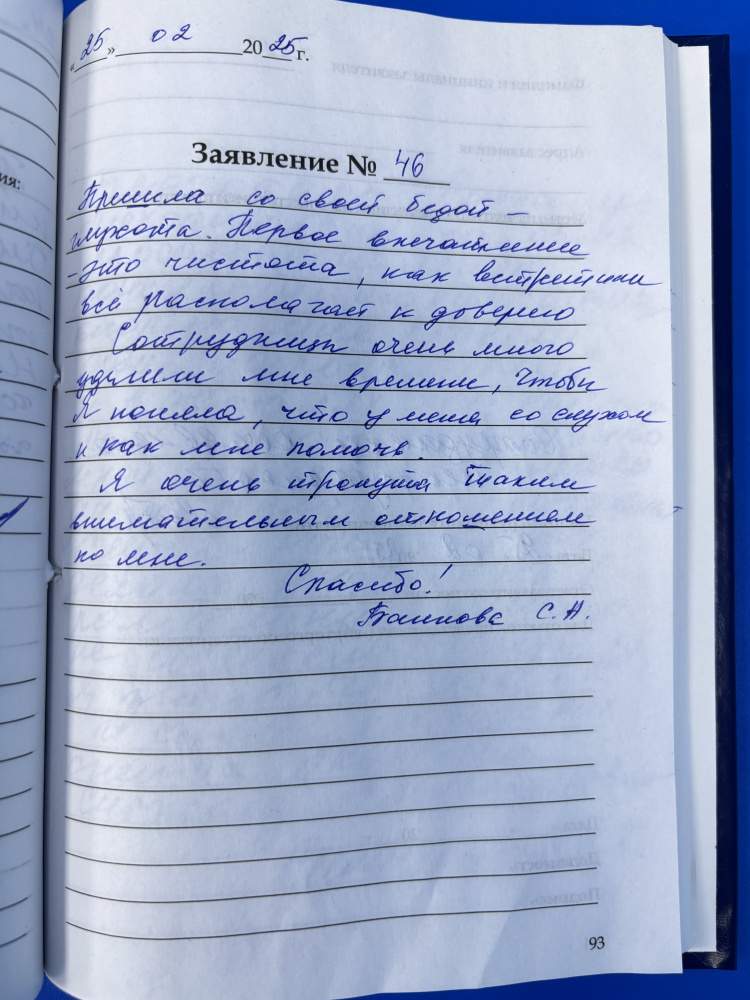 «25» 02 2025 г.
Заявление № 46
Пришла со своей бедой –
глухота. Первое впечатление
- это чистота, как встретили
всё располагает к доверию
Сотрудницы очень много
уделили мне времени, чтобы
я поняла, что у меня со слухом
и как мне помочь.
Я очень тронута таким
внимательным отношением
ко мне.
Спасибо!
С.А.
ия:
93